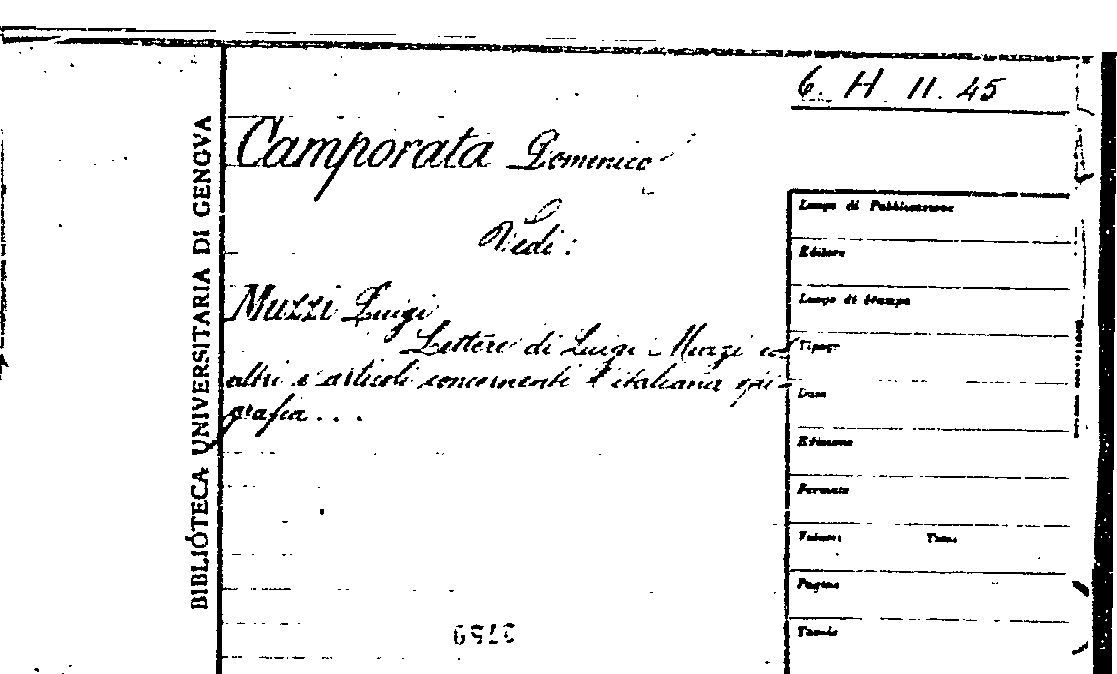 6. H 11. 45
BIBLIOTECA UNIVERSITARIA DI GENOVA
Camporata Domenico
Vedi:
Muzzi Luigi
Lettere di Luigi Muzzi ed
altri e articoli concernenti l'italiana epi-
grafia...
Luogo di Pubblicazione
Editore
Luogo di Stampa
Tipogr
Data
Edizione
Formato
Volumi Tomi
Pagine
Tavole
3759